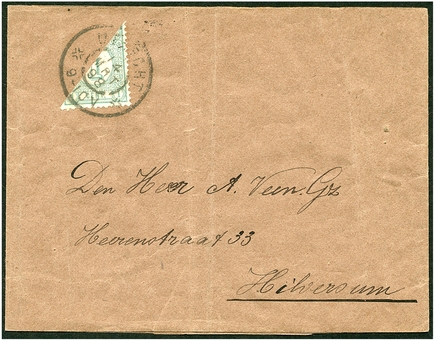 Den Heer A. Veen. Gz
Heerenstraat 33
Hilversum